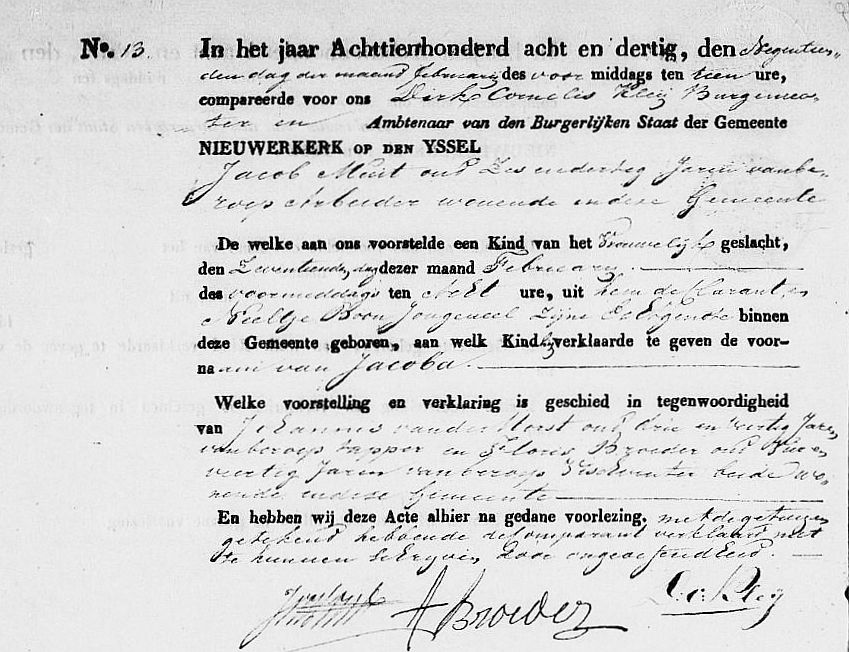 No. 13. In het jaar Achttienhonderd acht en dertig, den Negentien-
den dag der maand februarij des voor middags ten tien ure,
compareerde voor ons Dirk Cornelis Kleij Burgemees-
ter en Ambtenaar van den Burgerlijken Staat der Gemeente
NIEUWERKERK OP DEN YSSEL
Jacob Muit oud Zes en dertig Jaren van be-
roep Arbeider wonende in dese Gemeente
De welke aan ons voorstelde een Kind van het Vrouwelijk geslacht,
den Zeventiende dag dezer maand Februarij
des voormiddags ten Acht ure, uit hem declarant en
Neeltje Boon Jongeneel Zijne Echtgenote binnen
deze Gemeente geboren, aan welk Kind hij verklaarde te geven de voor-
naam van Jacoba.
Welke voorstelling en verklaring is geschied in tegenwoordigheid
van Johannis van der Horst oud drie en veertig Jaren
van beroep tapper en Floris Broeder oud
veertig Jaren van beroep beide wo-
nende in dese Gemeente
En hebben wij deze Acte alhier na gedane voorlezing, met de getuigen
getekend hebbende de Comparant verklaard niet
te kunnen Schryven door ongeoefendheid.
F Broeder D. C. Kleij